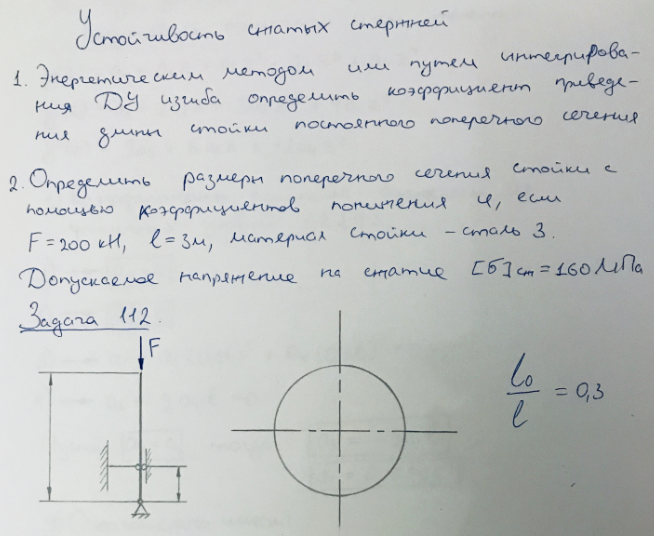 Устойчивость сжатых стержней
1. Энергетическим методом или путем интегрирова-
ния ДУ изгиба определить коэффициент приведе-
ния длины стойки постоянного поперечного сечения
2. Определить размеры поперечного сечения стойки с
помощью коэффициентов понижения φ, если
F = 200 кН, l = 3м, материал стойки – сталь 3.
Допускаемое напряжение на сжатие [σ]сж = 160 МПа
Задача 112.
F
l₀/l = 0,3